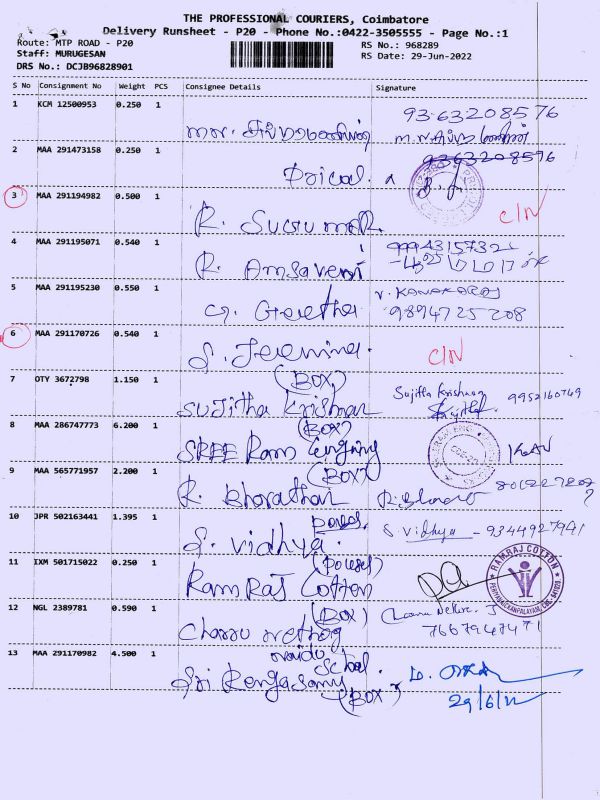 THE PROFESSIONAL COURIERS, Coimbatore
Delivery Runsheet - P20 - Phone No.:0422-3505555 - Page No.:1
Route: MTP ROAD - P20
RS No.: 968289
Staff: MURUGESAN
RS Date: 29-Jun-2022
DRS No.: DCJB96828901
S No Consignment No Weight PCS Consignee Details Signature
1 KCM 12500953 0.250 1
9363208576
2 MAA 291473158 0.250 1
9363208576
Pricol.
3 MAA 291194982 0.500 1
C/N
R. Sugumar
4 MAA 291195071 0.540 1
R. Amsaveni
5 MAA 291195230 0.550 1
V. KANAKARAJ
G. Geetha
9894725208
6 MAA 291170726 0.540 1
S. Jeemina.
C/N
7 OTY 3672798 1.150 1
(BOX)
Sujitha Krishnan 9952160769
Sujitha Krishnan
8 MAA 286747773 6.200 1
(BOX)
SREE Ram Enginry
9 MAA 565771957 2.200 1
(BOX)
R. Bharathan
10 JPR 502163441 1.395 1
S. Vidhya - 9344927941
S. Vidhya.
11 IXM 501715022 0.250 1
RamRaj Cotton
RAMRAJ COTTON
12 NGL 2389781 0.590 1
(BOX)
Charru Nethra. J
7667947471
13 MAA 291170982 4.500 1
naidu School.
Sri Rengasamy
(BOX)
29/6/22